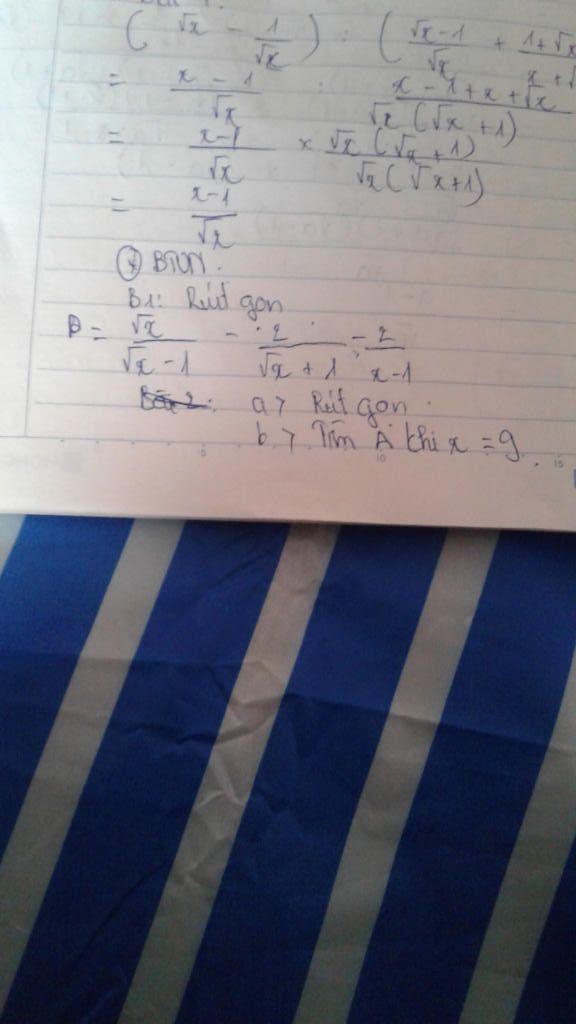 ( √x - 1/√x ) : ( (√x-1)/√x + (1+√x)/(x+√
= (x-1)/√x : (x-1+x+√x)/(√x(√x+1))
= (x-1)/√x × (√x(√x+1))/(√x(√x+1))
= (x-1)/√x
* BTVN.
B1: Rút gọn
P = √x/(√x-1) - 2/(√x+1) - 2/(x-1)
a> Rút gọn.
b> Tìm A khi x = 9.